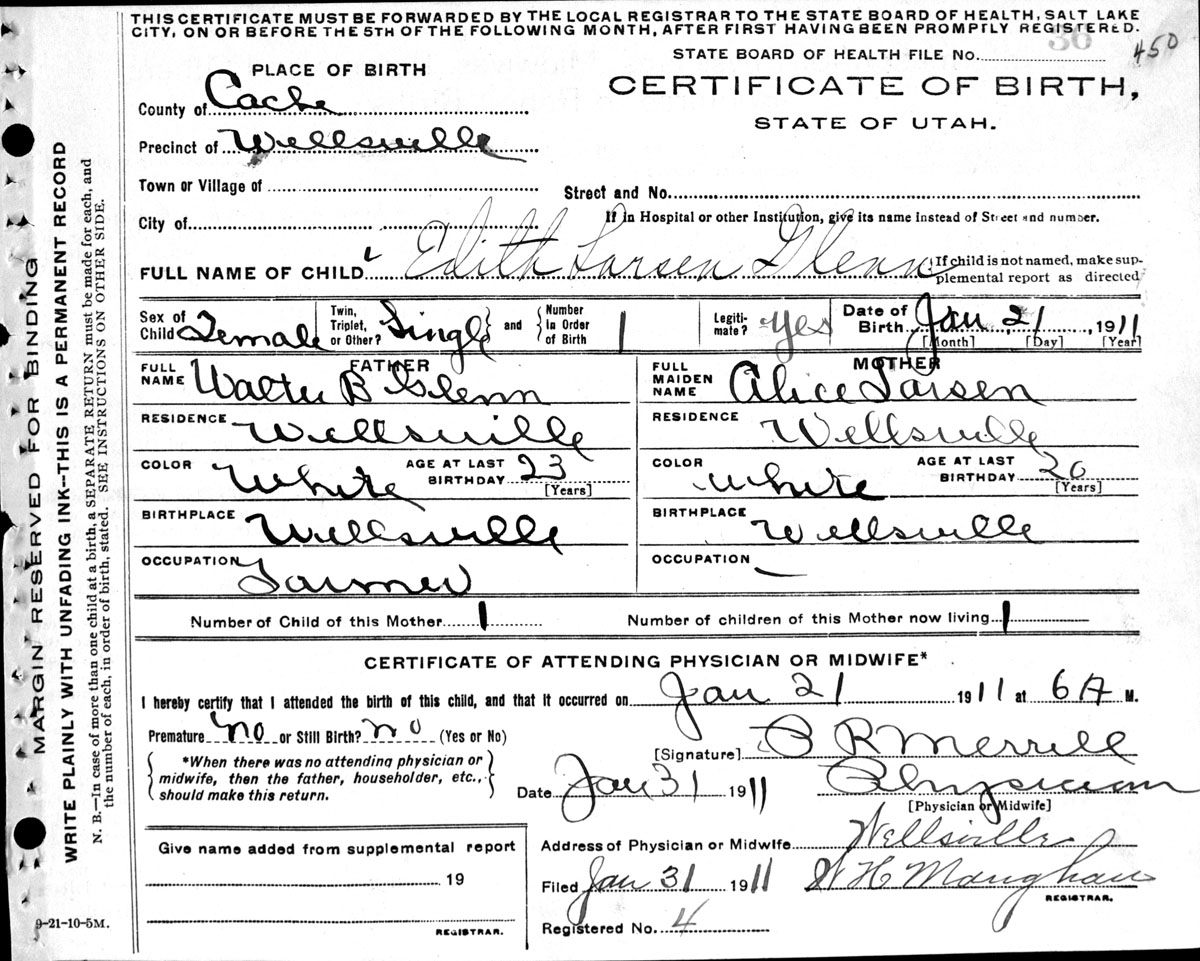 THIS CERTIFICATE MUST BE FORWARDED BY THE LOCAL REGISTRAR TO THE STATE BOARD OF HEALTH, SALT LAKE
CITY, ON OR BEFORE THE 5TH OF THE FOLLOWING MONTH, AFTER FIRST HAVING BEEN PROMPTLY REGISTERED.
36
450
STATE BOARD OF HEALTH FILE No.
PLACE OF BIRTH
CERTIFICATE OF BIRTH,
STATE OF UTAH.
County of Cache
Precinct of Wellsville
Town or Village of
Street and No.
City of
If in Hospital or other Institution, give its name instead of Street and number.
FULL NAME OF CHILD Edith Larsen Glenn
If child is not named, make sup-
plemental report as directed
Sex of Child Female
Twin, Triplet, or Other? Single
and
Number In Order of Birth 1
Legiti-mate? Yes
Date of Birth Jan 21, 1911
[Month] [Day] [Year]
FATHER
FULL NAME Walter B Glenn
RESIDENCE Wellsville
COLOR White
AGE AT LAST BIRTHDAY 23
[Years]
BIRTHPLACE Wellsville
OCCUPATION Farmer
MOTHER
FULL MAIDEN NAME Alice Larsen
RESIDENCE Wellsville
COLOR White
AGE AT LAST BIRTHDAY 20
[Years]
BIRTHPLACE Wellsville
OCCUPATION —
Number of Child of this Mother 1
Number of children of this Mother now living 1
CERTIFICATE OF ATTENDING PHYSICIAN OR MIDWIFE*
I hereby certify that I attended the birth of this child, and that it occurred on Jan 21 1911 at 6 A M.
Premature no or Still Birth? no (Yes or No)
*When there was no attending physician or
midwife, then the father, householder, etc.,
should make this return.
[Signature] P R Merrill
Date Jan 31 1911
Physician
[Physician or Midwife]
Address of Physician or Midwife Wellsville
Filed Jan 31 1911 W H Maughan
REGISTRAR.
Registered No. 4
Give name added from supplemental report
19
REGISTRAR.
9-21-10-5M.
MARGIN RESERVED FOR BINDING
WRITE PLAINLY WITH UNFADING INK--THIS IS A PERMANENT RECORD
N. B.—In case of more than one child at a birth, a SEPARATE RETURN must be made for each, and
the number of each, in order of birth, stated. SEE INSTRUCTIONS ON OTHER SIDE.